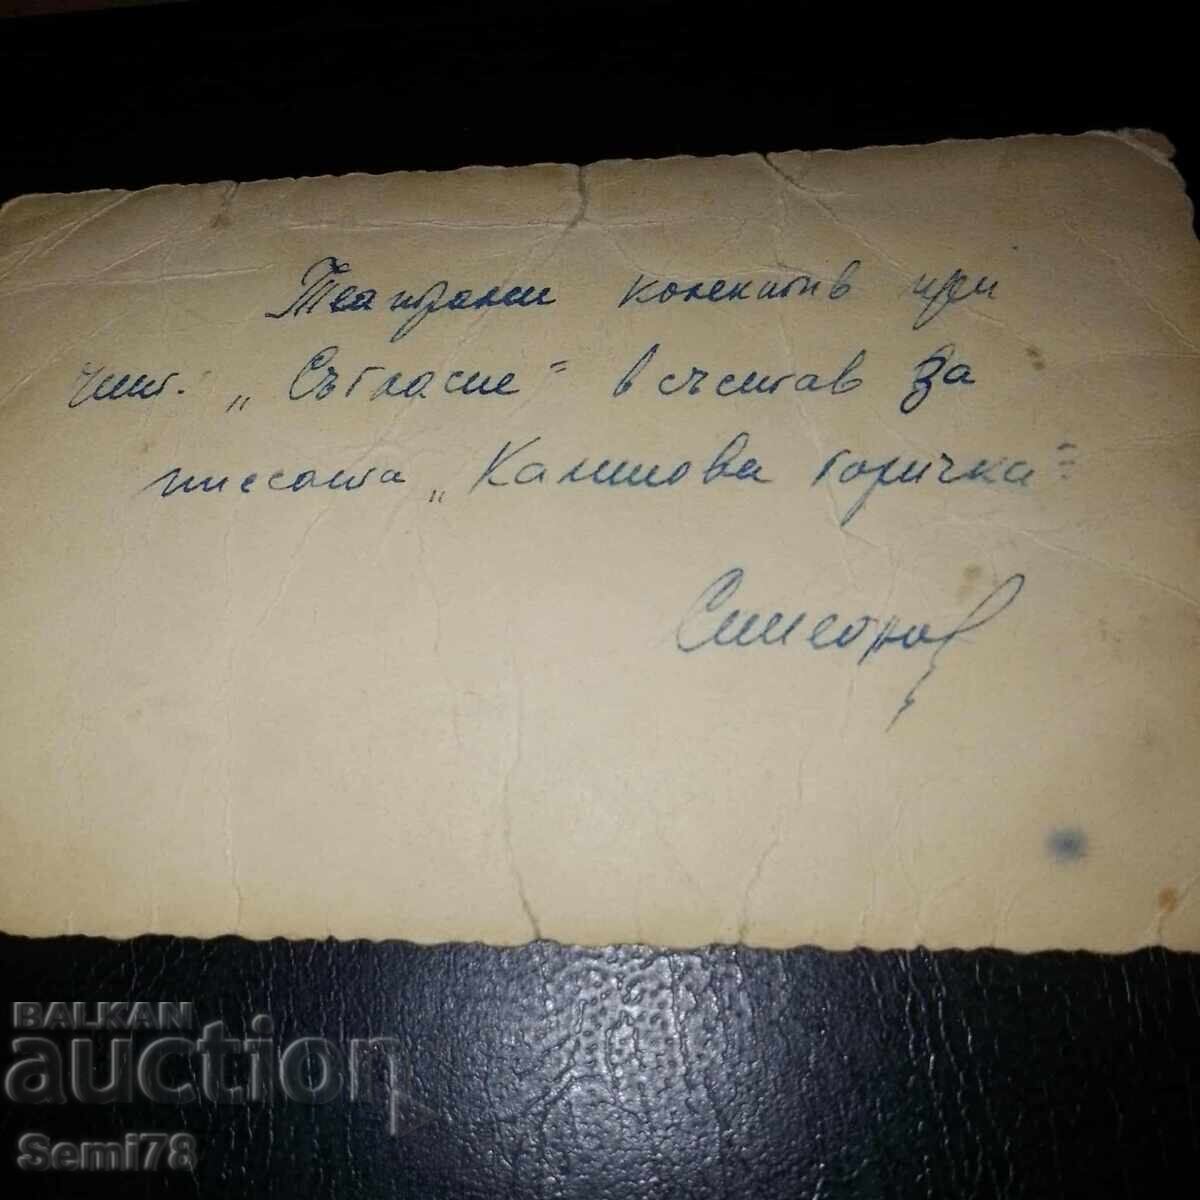 Театрални колектив при
чит. „Съгласие" в състав за
писсата „Калинова горичка"
Симеонов
BALKAN
auction
Semi78